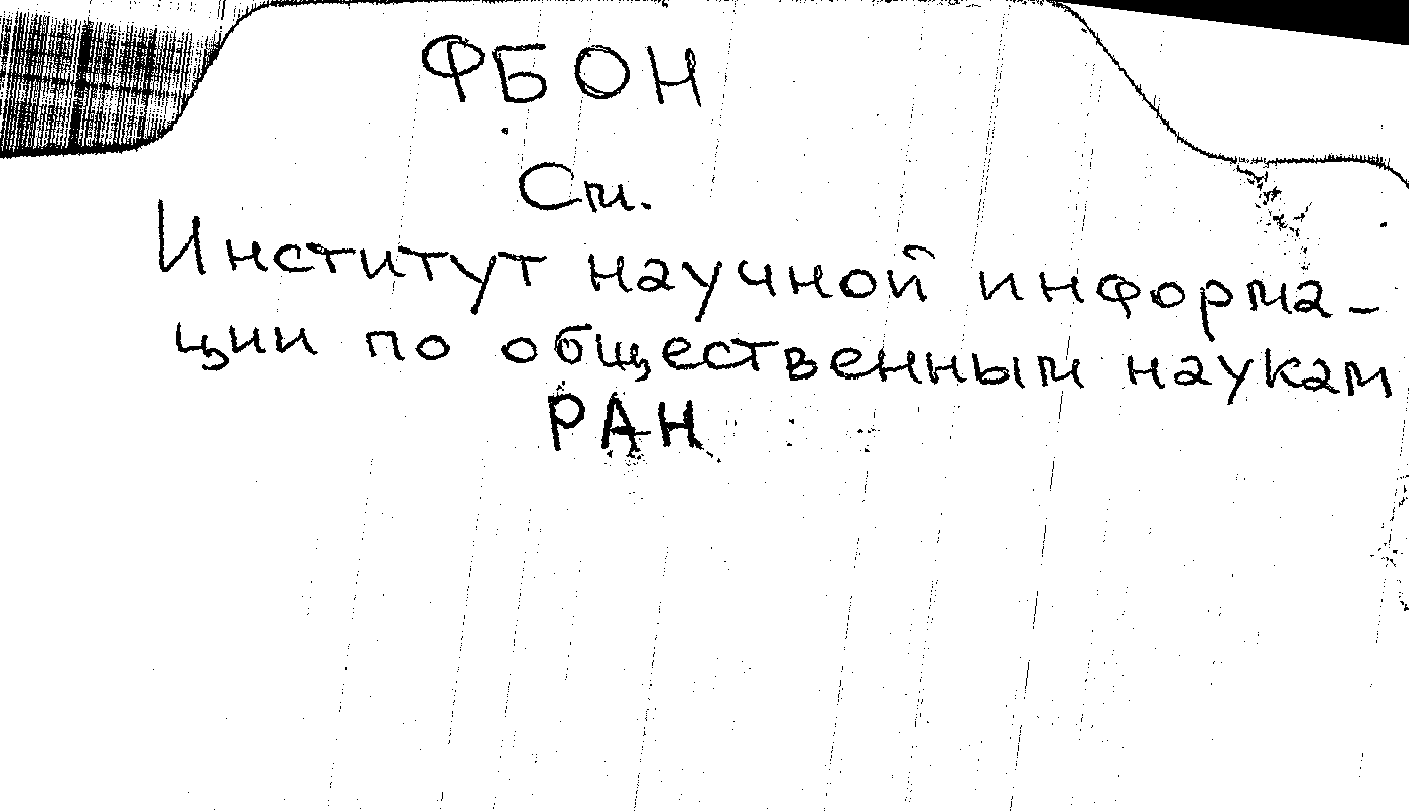 ФБОН
См.
Институт научной информа-
ции по общественным наукам
РАН